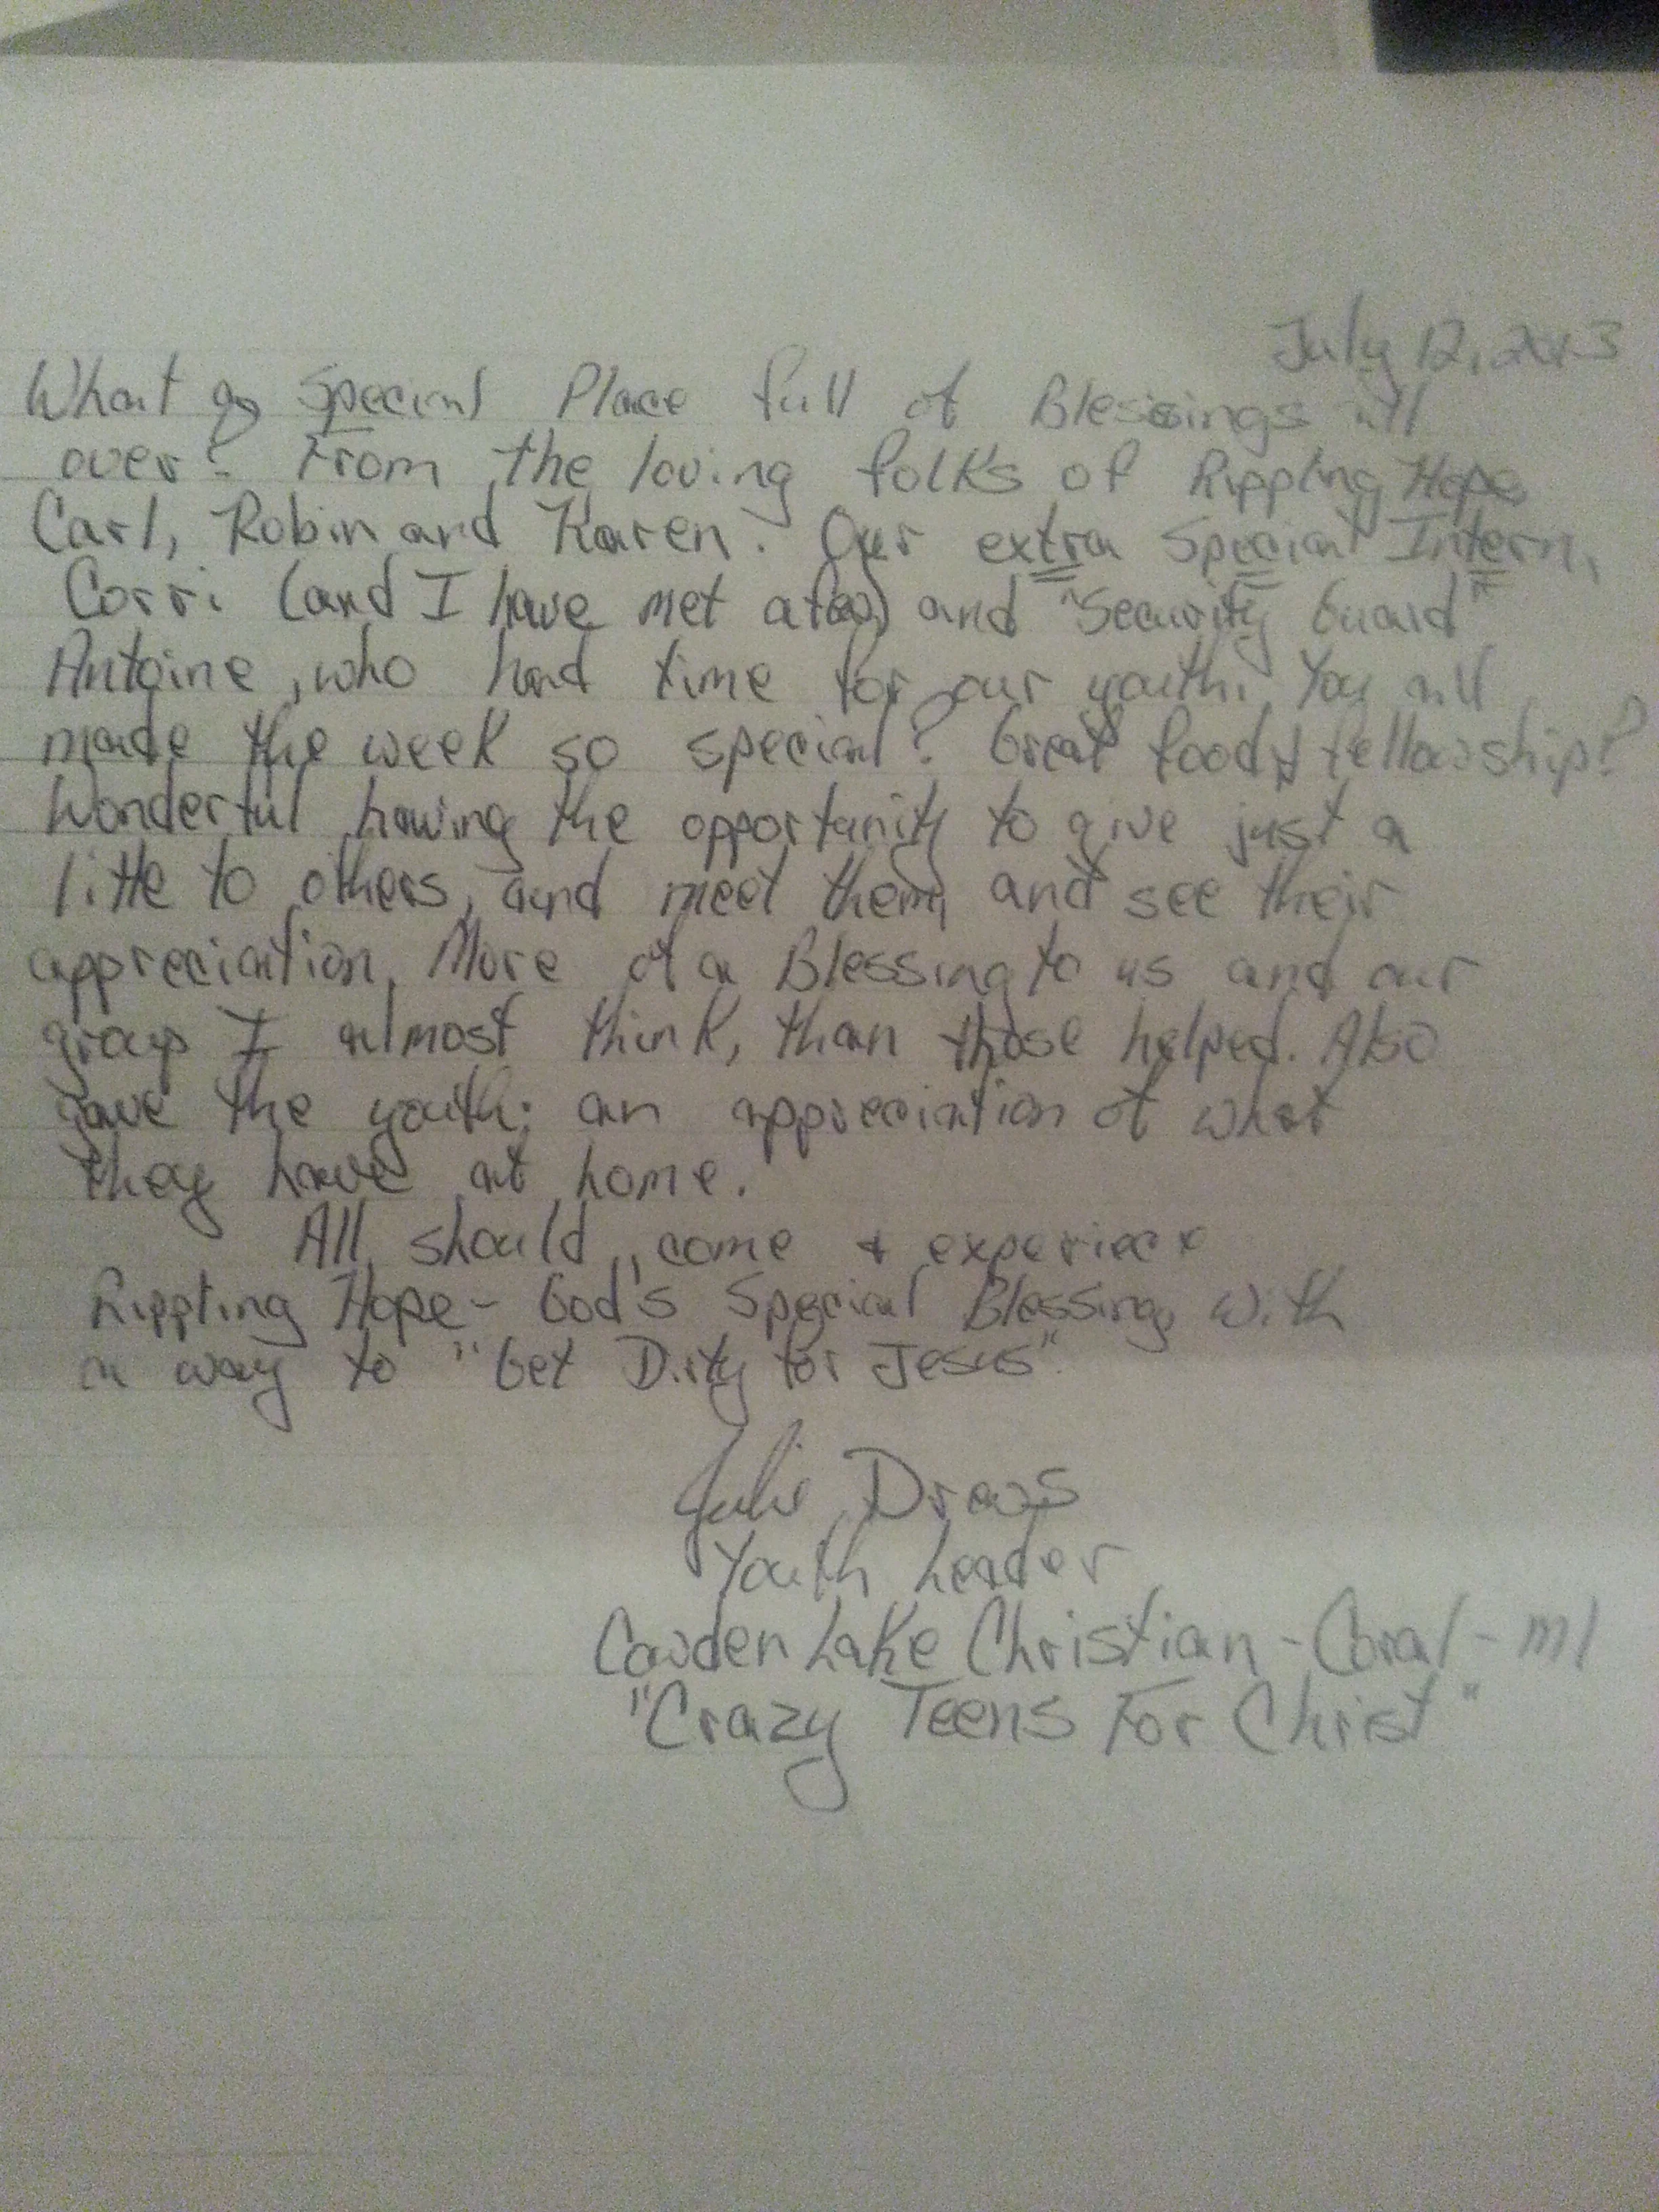 July 12, 2013
What a Special Place full of Blessings all
over! From the loving folks of Rippling Hope
Carl, Robin and Karen. Our extra Special Intern,
Corri (and I have met afew) and "Security Guard"
Antoine, who had time for our youth. You all
made the week so special! Great food & fellowship!
Wonderful having the opportunity to give just a
little to others, and meet them, and see their
appreciation. More of a Blessing to us and our
group I almost think, than those helped. Also
gave the youth an appreciation of what
they have at home.
All should come & experiece
Rippling Hope - God's Special Blessing with
a way to "Get Dirty for Jesus".
Julie Drews
Youth Leader
Cowden Lake Christian - Coral - MI
"Crazy Teens For Christ"